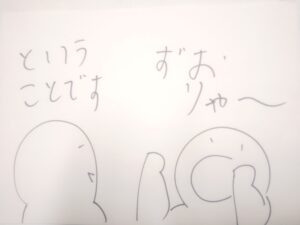 という
ことです
ずお
りゃ〜